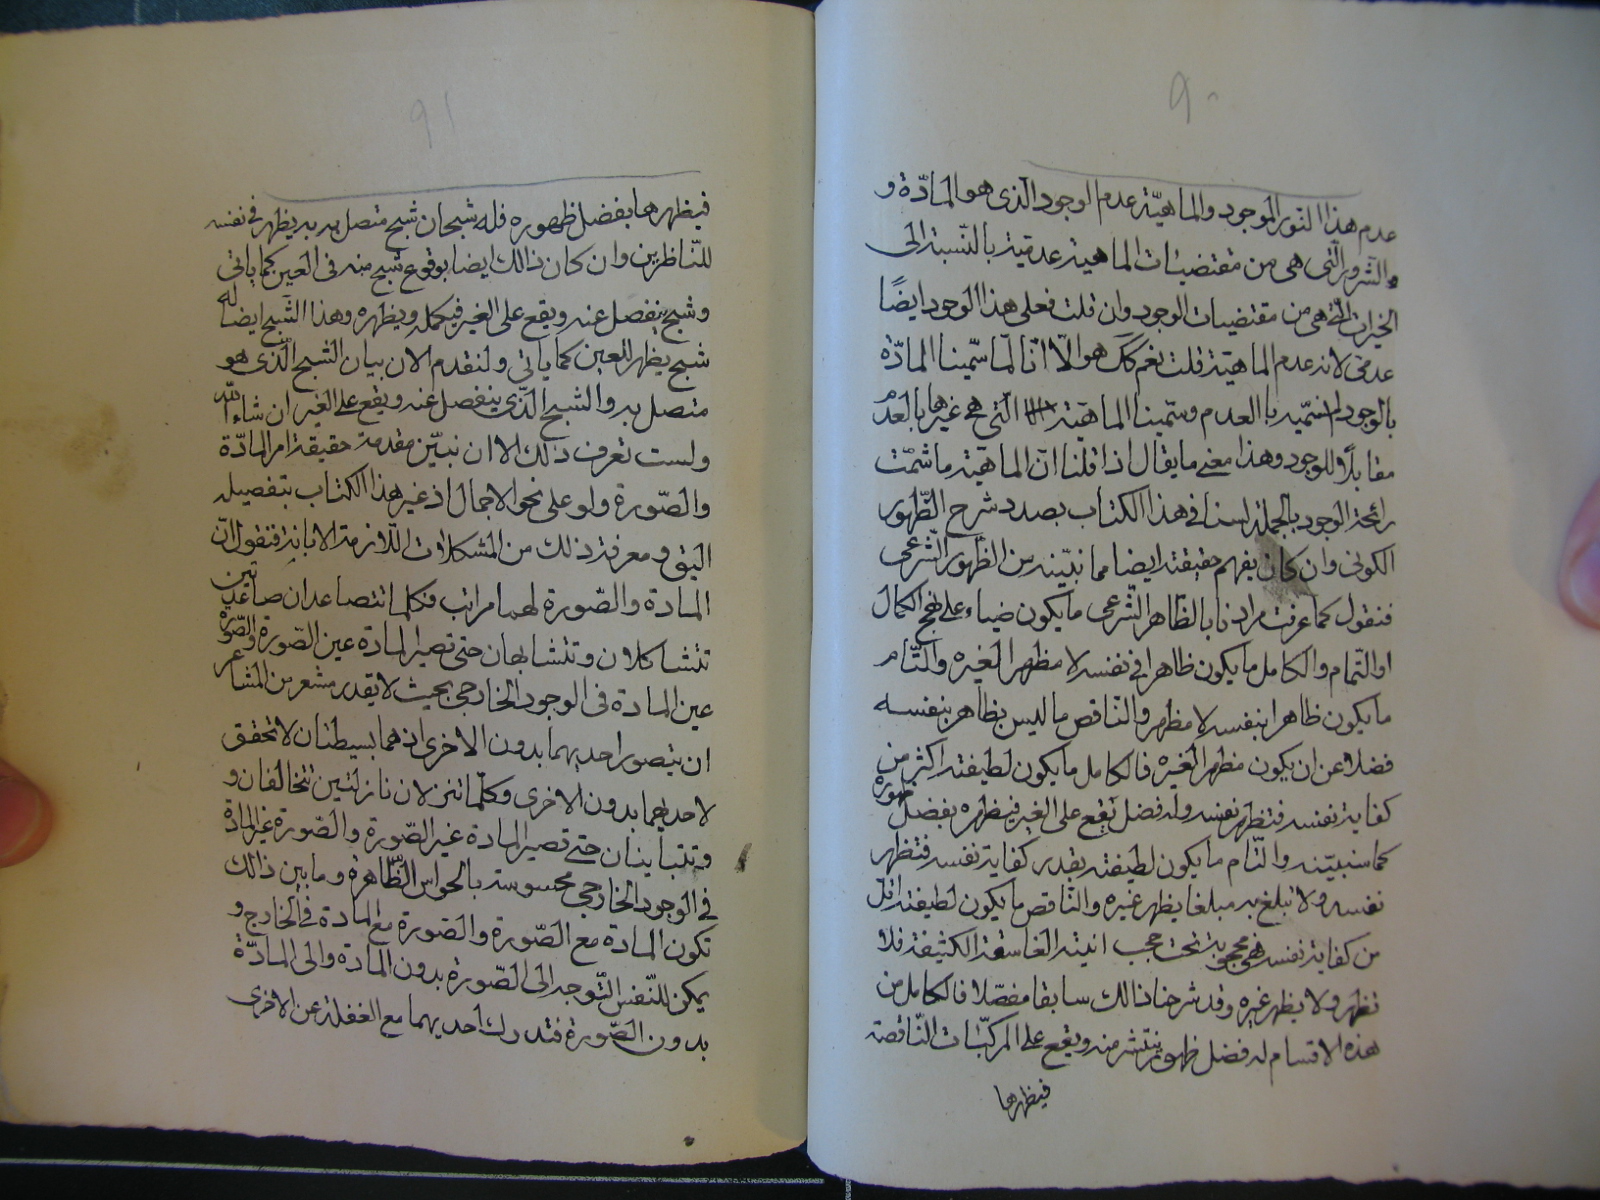 ٩٠
عدم هذا النور الموجود والماهيّة عدم الوجود الذى هو المادّة و
والشّرور الّتى هى من مقتضيات الماهية عدميّة بالنّسبة الى
الخيرات الّتى هى من مقتضيات الوجود وان قلت فعلى هذا الوجود ايضًا
عدمى لانه عدم الماهيّة قلت نعم كك هو الّا انّا لمّا سمّينا المادّة
بالوجود لم نسمّيه بالعدم وسمّينا الماهيّة الّتى هى غيرها بالعدم
مقابلًا للوجود وهذا معنى ما يقال اذا قلنا انّ الماهيّة ما شمّت
رائحة الوجود بالجملة لسنا فى هذا الكتاب بصدد شرح الظّهور
الكونى وان كان يفهم حقيقته ايضا مما نبيّنه من الظهور الشّرعى
فنقول كما عرفت مرادنا بالظّاهر الشّرعى ما يكون ضياء على نهج الكمال
او التّمام والكامل ما يكون ظاهرا فى نفسه لا مظهرا لغيره والتّام
ما يكون ظاهرا بنفسه لا مظهر والنّاقص ما ليس بظاهر بنفسه
فضلا عن ان يكون مظهرا لغيره فالكامل ما يكون لطيفته اكثر من
كفاية نفسه فتظهر نفسه وله فضل يقع على الغير فيظهره بفضل ظهوره
كما سنبيّنه والتّام ما يكون لطيفته بقدر كفاية نفسه فتظهر
نفسه ولا تبلغ به مبلغا يظهر غيره والنّاقص ما يكون لطيفته اقل
من كفاية نفسه فهى محجوبة تحت حجب انيته الغاسقة الكثيفة فلا
تظهر ولا يظهر غيره وقد شرحنا ذالك سابقا مفصّلا فالكامل من
هذه الاقسام له فضل ظهور ينتشر منه ويقع على المركبّات النّاقصة
فيظهرها
٩١
فيظهرها بفضل ظهوره فله شبحان شبح متصل به به يظهر فى نفسه
للنّاظرين وان كان ذالك ايضا بوقوع شبح منه فى العين كما ياتى
وشبح ينفصل عنه ويقع على الغير فيكمله ويظهره وهذا الشّبح ايضا له
شبح يظهر للعين كما ياتى ولنقدم الان بيان الشبح الّذى هو
متصل به والشبح الّذى ينفصل عنه ويقع على الغير ان شاء اللّه
ولست تعرف ذلك الا ان نبيّن مقدمة حقيقة امر المادّة
والصّورة ولو على نحو الاجمال اذ غير هذا الكتاب بتفصيله
اليق ومعرفة ذلك من المشكلات اللّازمة الابانة فنقول انّ
المادة والصّورة لهما مراتب فكلما تتصاعدان صاعدتين
تتشاكلان وتتشابهان حتى تصير المادة عين الصّورة والصّورة
عين المادة فى الوجود الخارجى بحيث لا يقدر مشعر من المشاعر
ان يتصور احديهما بدون الاخرى اذ هما بسيطتان لا تحقق
لاحديهما بدون الاخرى وكلّما تتنزلان نازلتين تتخالفان و
وتتباينان حتى تصير المادة غير الصّورة والصّورة غير المادة
فى الوجود الخارجى محسوسة بالحواس الظّاهرة وما بين ذالك
تكون المادة مع الصّورة والصّورة مع المادة فى الخارج و
يمكن للنّفس التّوجه الى الصّورة بدون المادة والى المادّة
بدون الصّورة فتدرك احديهما مع الغفلة عن الاخرى